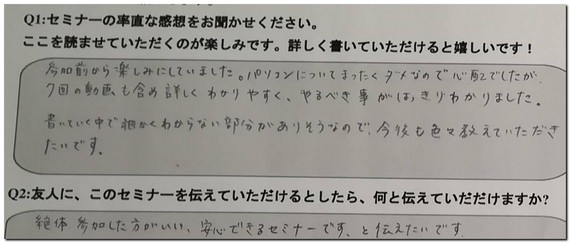 Q1:セミナーの率直な感想をお聞かせください。
ここを読ませていただくのが楽しみです。詳しく書いていただけると嬉しいです！
参加前から楽しみにしていました。パソコンについてまったくダメなので心配でしたが、
7回の動画も含め詳しくわかりやすく、やるべき事がはっきりわかりました。
書いていく中で細かくわからない部分がありそうなので、今後も色々教えていただき
たいです。
Q2:友人に、このセミナーを伝えていただけるとしたら、何と伝えていだだけますか?
絶体参加した方がいい、安心できるセミナーです、と伝えたいです